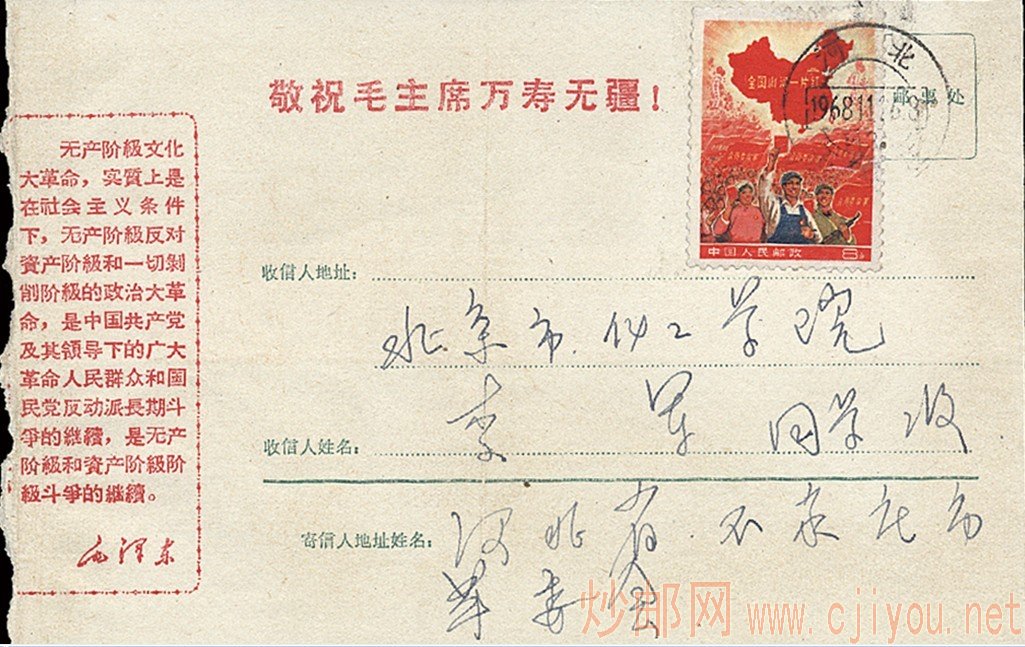 敬祝毛主席万寿无疆！
无产阶級文化
大革命，实質上是
在社会主义条件
下，无产阶級反对
資产阶級和一切剝
削阶級的政治大革
命，是中国共产党
及其領导下的广大
革命人民群众和国
民党反动派長期斗
爭的継續，是无产
阶級和資产阶級阶
級斗爭的継續。
毛泽东
全国山河一片红
中国人民邮政
8分
河北
1968.11.
邮票处
收信人地址：
北京市化工学院
收信人姓名：
李 军 同学收
寄信人地址姓名：
河北省
革委会
炒邮网 www.cjiyou.net